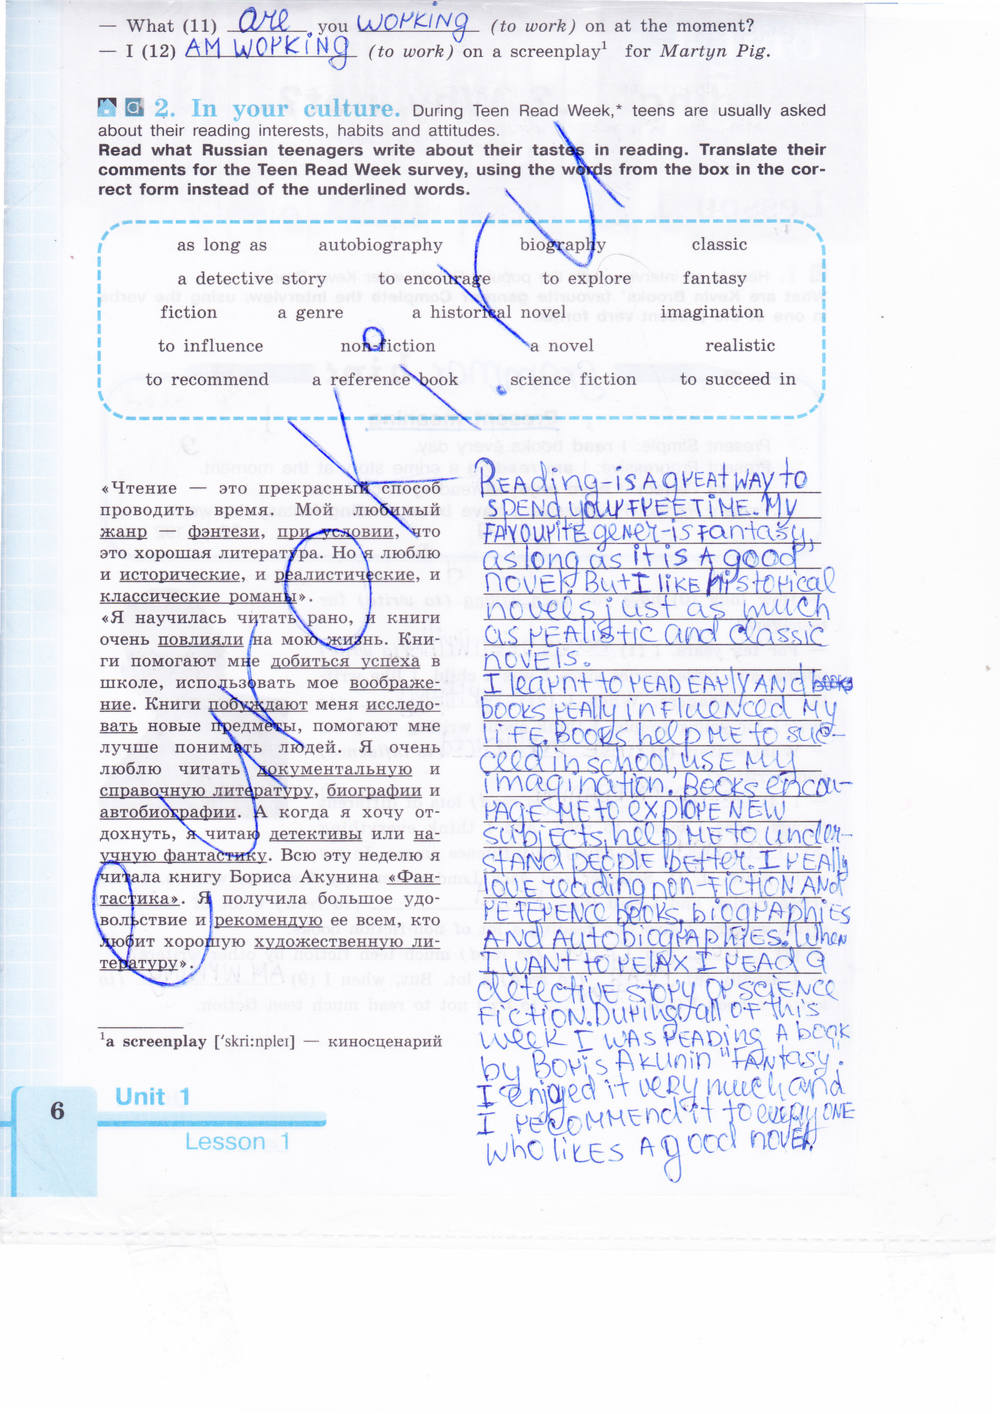 — What (11) are you working (to work) on at the moment?
— I (12) AM WORKING (to work) on a screenplay¹ for Martyn Pig.
2. In your culture. During Teen Read Week,* teens are usually asked
about their reading interests, habits and attitudes.
Read what Russian teenagers write about their tastes in reading. Translate their
comments for the Teen Read Week survey, using the words from the box in the cor-
rect form instead of the underlined words.
as long as autobiography biography classic
a detective story to encourage to explore fantasy
fiction a genre a historical novel imagination
to influence non-fiction a novel realistic
to recommend a reference book science fiction to succeed in
«Чтение — это прекрасный способ
проводить время. Мой любимый
жанр — фэнтези, при условии, что
это хорошая литература. Но я люблю
и исторические, и реалистические, и
классические романы».
«Я научилась читать рано, и книги
очень повлияли на мою жизнь. Кни-
ги помогают мне добиться успеха в
школе, использовать мое воображе-
ние. Книги побуждают меня исследо-
вать новые предметы, помогают мне
лучше понимать людей. Я очень
люблю читать документальную и
справочную литературу, биографии и
автобиографии. А когда я хочу от-
дохнуть, я читаю детективы или на-
учную фантастику. Всю эту неделю я
читала книгу Бориса Акунина «Фан-
тастика». Я получила большое удо-
вольствие и рекомендую ее всем, кто
любит хорошую художественную ли-
тературу».
Reading-is A great way to
spend your free time. My
favourite gener-is fantasy,
as long as it is A good
novel. But I like historical
novels just as much
as realistic and classic
novels.
I learnt to read early And books
books really influenced My
life. Books help me to suc-
ceed in school, use my
imagination. Books encou-
rage me to explore new
subjects, help me to under-
stand people better. I really
love reading non-fiction And
reference books, biographies
And Autobiographies. When
I want to relax I read a
detective story or science
fiction. During all of this
week I was reading A book
by Boris Akunin "Fantasy".
I enjoed it very much and
I recommend it to everyone
who likes A good novel.
¹a screenplay ['skri:npleɪ] — киносценарий
6
Unit 1
Lesson 1
YROKI.RU